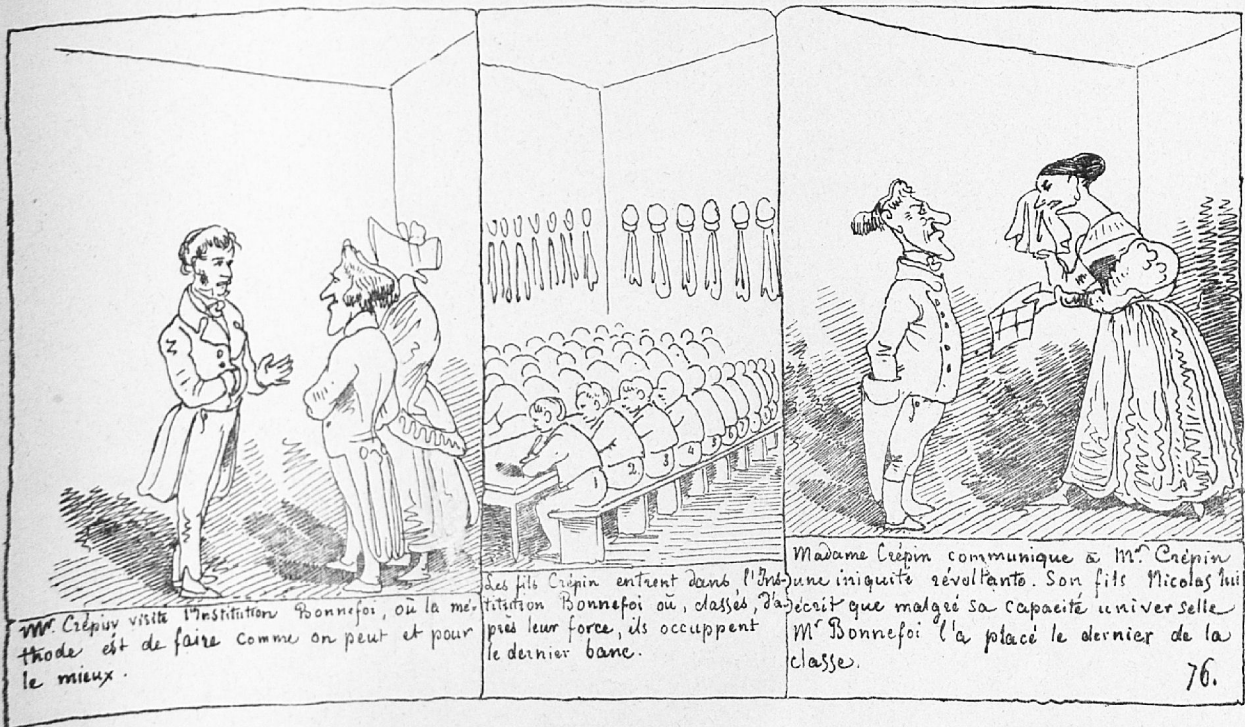 Mr. Crépin visite l'Institution Bonnefoi, où la mé-
thode est de faire comme on peut et pour
le mieux.
1
2
3
4
5
6
Les fils Crépin entrent dans l'Ins-
titution Bonnefoi où, classés, d'a-
près leur force, ils occuppent
le dernier banc.
Madame Crépin communique à Mr. Crépin
une iniquité révoltante. Son fils Nicolas lui
écrit que malgré sa capacité universelle
Mr Bonnefoi l'a placé le dernier de la
classe.
76.